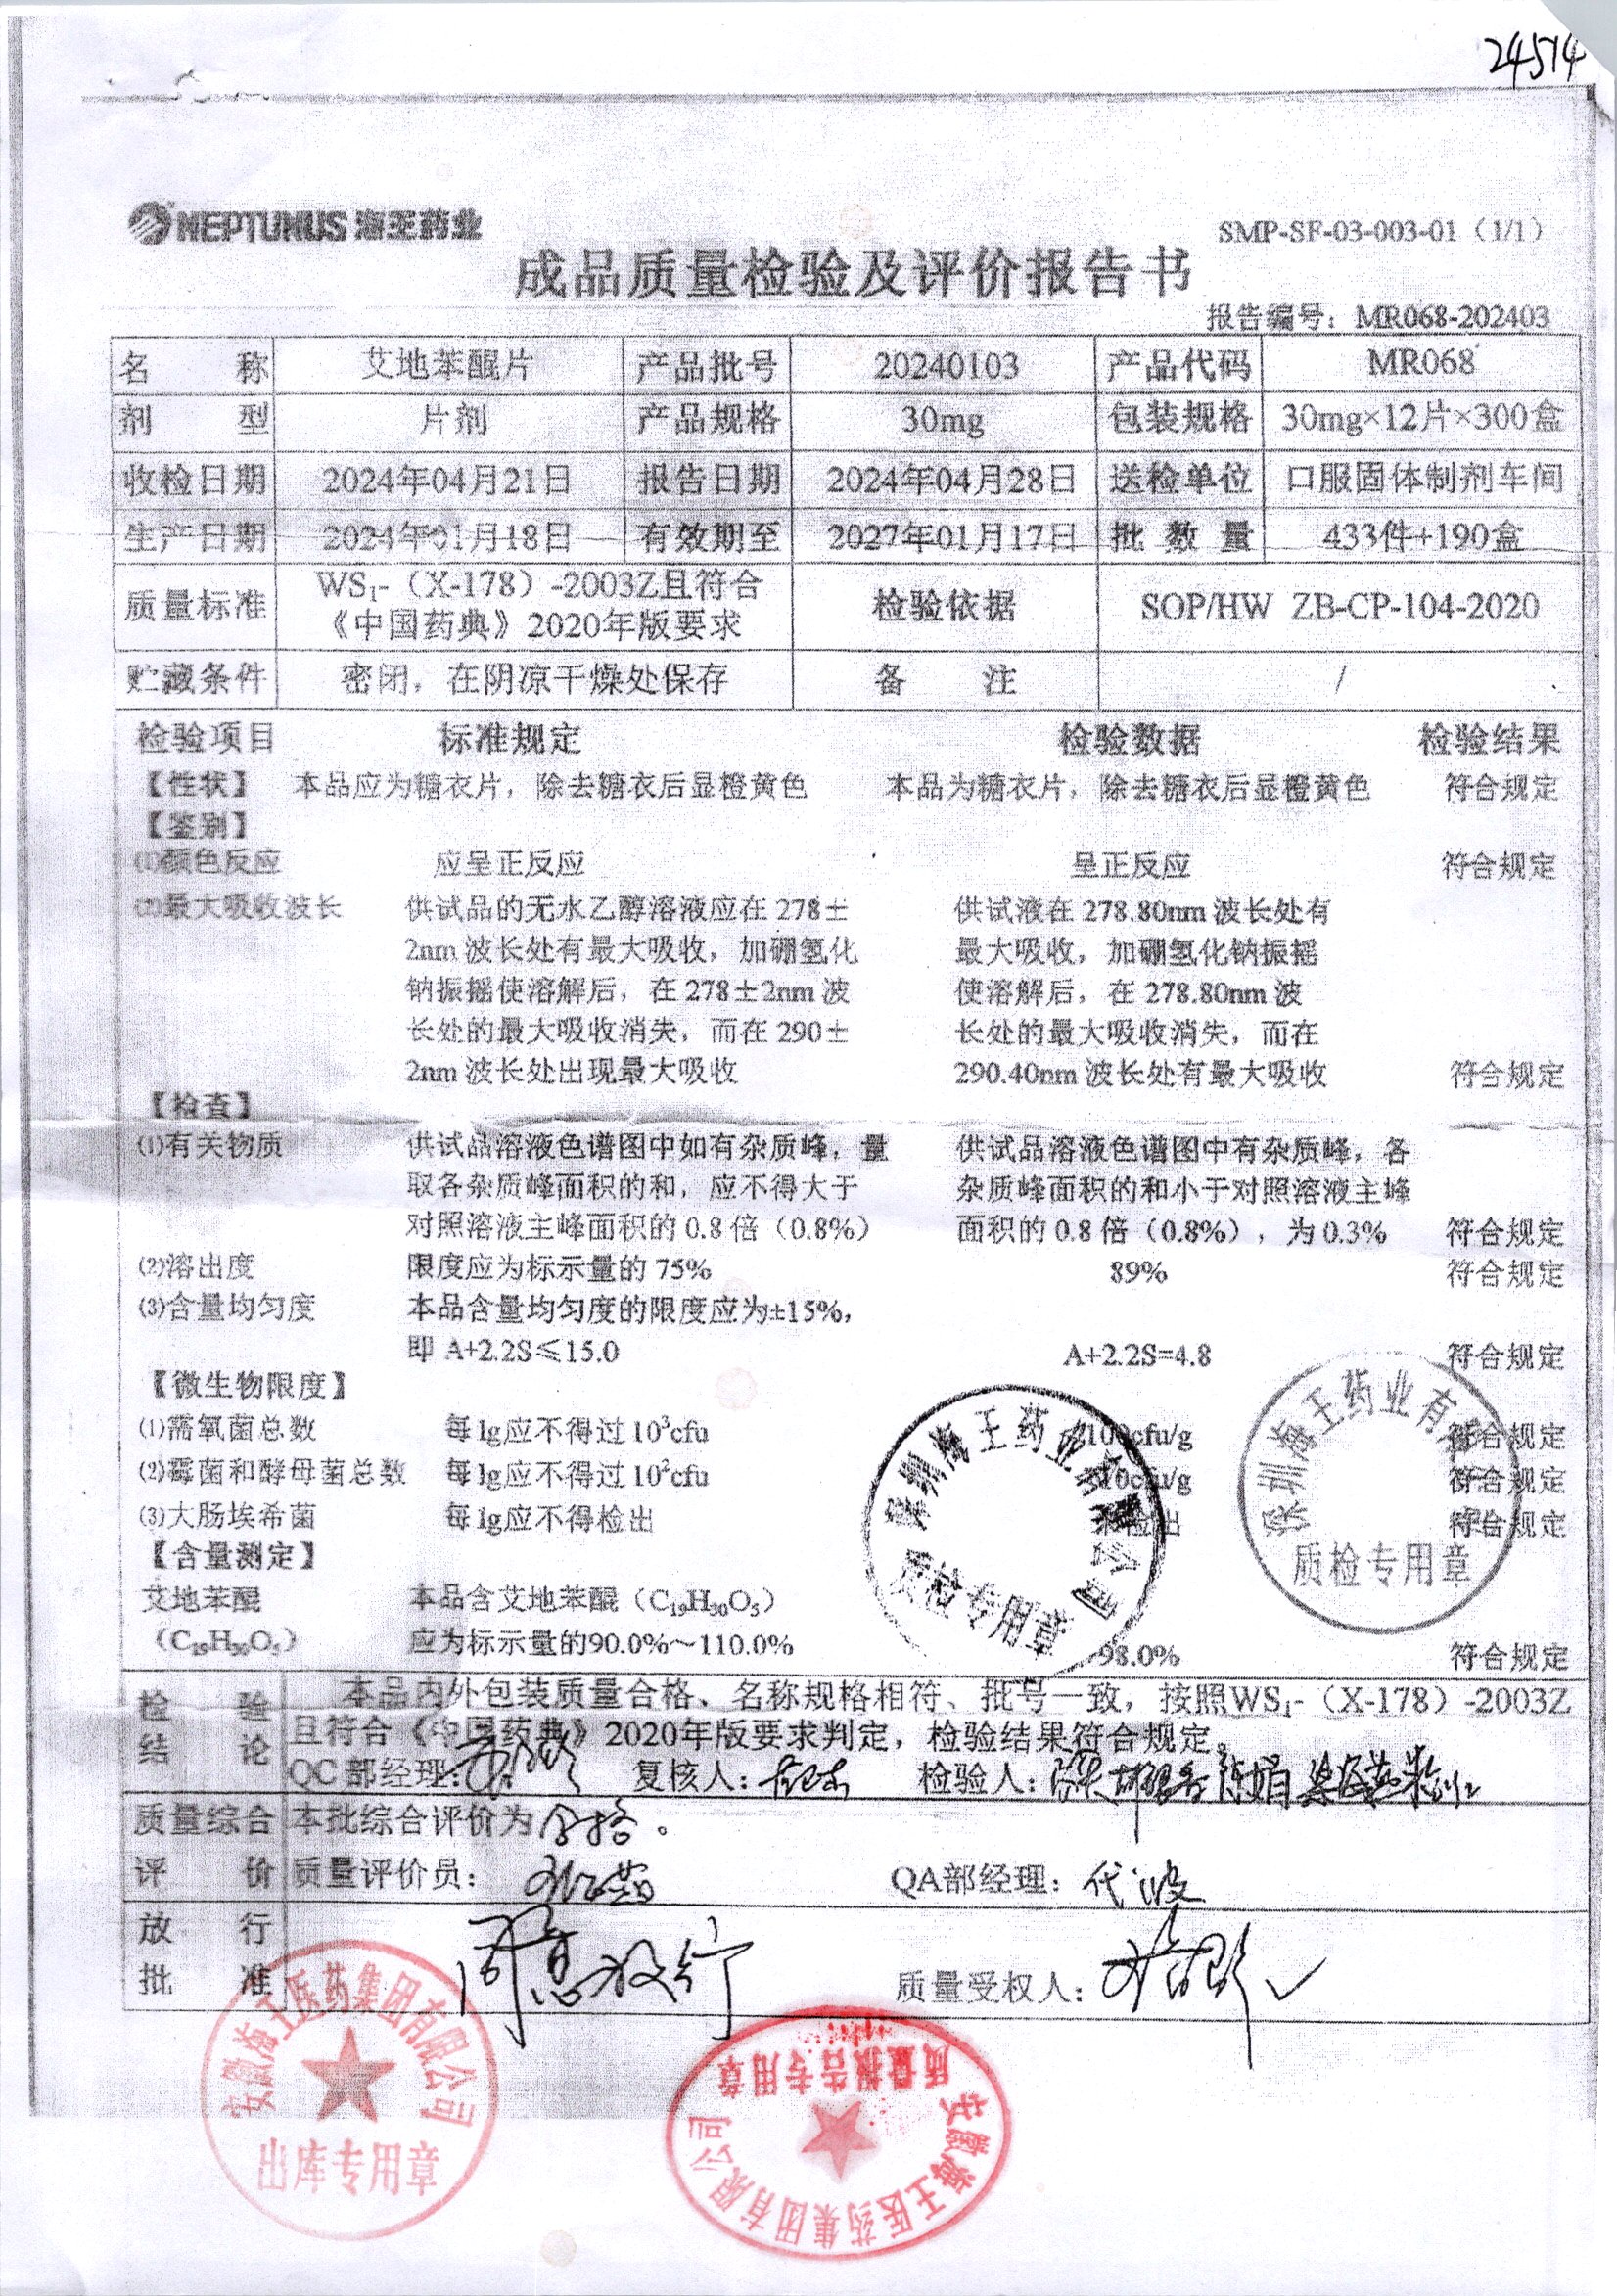 24514
NEPTUNUS 海王药业
SMP-SF-03-003-01（1/1）
成品质量检验及评价报告书
报告编号：MR068-202403
名 称 艾地苯醌片 产品批号 20240103 产品代码 MR068
剂 型 片剂 产品规格 30mg 包装规格 30mg×12片×300盒
收检日期 2024年04月21日 报告日期 2024年04月28日 送检单位 口服固体制剂车间
生产日期 2024年01月18日 有效期至 2027年01月17日 批 数 量 433件+190盒
质量标准 WS₁-（X-178）-2003Z且符合《中国药典》2020年版要求 检验依据 SOP/HW ZB-CP-104-2020
贮藏条件 密闭，在阴凉干燥处保存 备 注 /
检验项目 标准规定 检验数据 检验结果
【性状】 本品应为糖衣片，除去糖衣后显橙黄色 本品为糖衣片，除去糖衣后显橙黄色 符合规定
【鉴别】
⑴颜色反应 应呈正反应 呈正反应 符合规定
⑵最大吸收波长 供试品的无水乙醇溶液应在 278± 供试液在 278.80nm 波长处有
2nm 波长处有最大吸收，加硼氢化 最大吸收，加硼氢化钠振摇
钠振摇使溶解后，在 278±2nm 波 使溶解后，在 278.80nm 波
长处的最大吸收消失，而在 290± 长处的最大吸收消失，而在
2nm 波长处出现最大吸收 290.40nm 波长处有最大吸收 符合规定
【检查】
⑴有关物质 供试品溶液色谱图中如有杂质峰，量 供试品溶液色谱图中有杂质峰，各
取各杂质峰面积的和，应不得大于 杂质峰面积的和小于对照溶液主峰
对照溶液主峰面积的 0.8 倍（0.8%） 面积的 0.8 倍（0.8%），为 0.3% 符合规定
⑵溶出度 限度应为标示量的 75% 89% 符合规定
⑶含量均匀度 本品含量均匀度的限度应为±15%，
即 A+2.2S≤15.0 A+2.2S=4.8 符合规定
【微生物限度】
⑴需氧菌总数 每1g应不得过 10³cfu 100cfu/g 符合规定
⑵霉菌和酵母菌总数 每1g应不得过 10²cfu 10cfu/g 符合规定
⑶大肠埃希菌 每1g应不得检出 未检出 符合规定
【含量测定】
艾地苯醌 本品含艾地苯醌（C₁₉H₃₀O₅）
（C₁₉H₃₀O₅） 应为标示量的90.0%～110.0% 98.0% 符合规定
深圳海王药业有限公司
质检专用章
深圳海王药业有限公司
质检专用章
检 验 本品内外包装质量合格、名称规格相符、批号一致，按照WS₁-（X-178）-2003Z
结 论 且符合《中国药典》2020年版要求判定，检验结果符合规定。
QC部经理： 复核人： 检验人：
质量综合 本批综合评价为合格。
评 价 质量评价员： QA部经理：代波
放 行 同意放行
批 准 质量受权人：
安徽海王医药集团有限公司
出库专用章
安徽海王医药集团有限公司
质量报告专用章